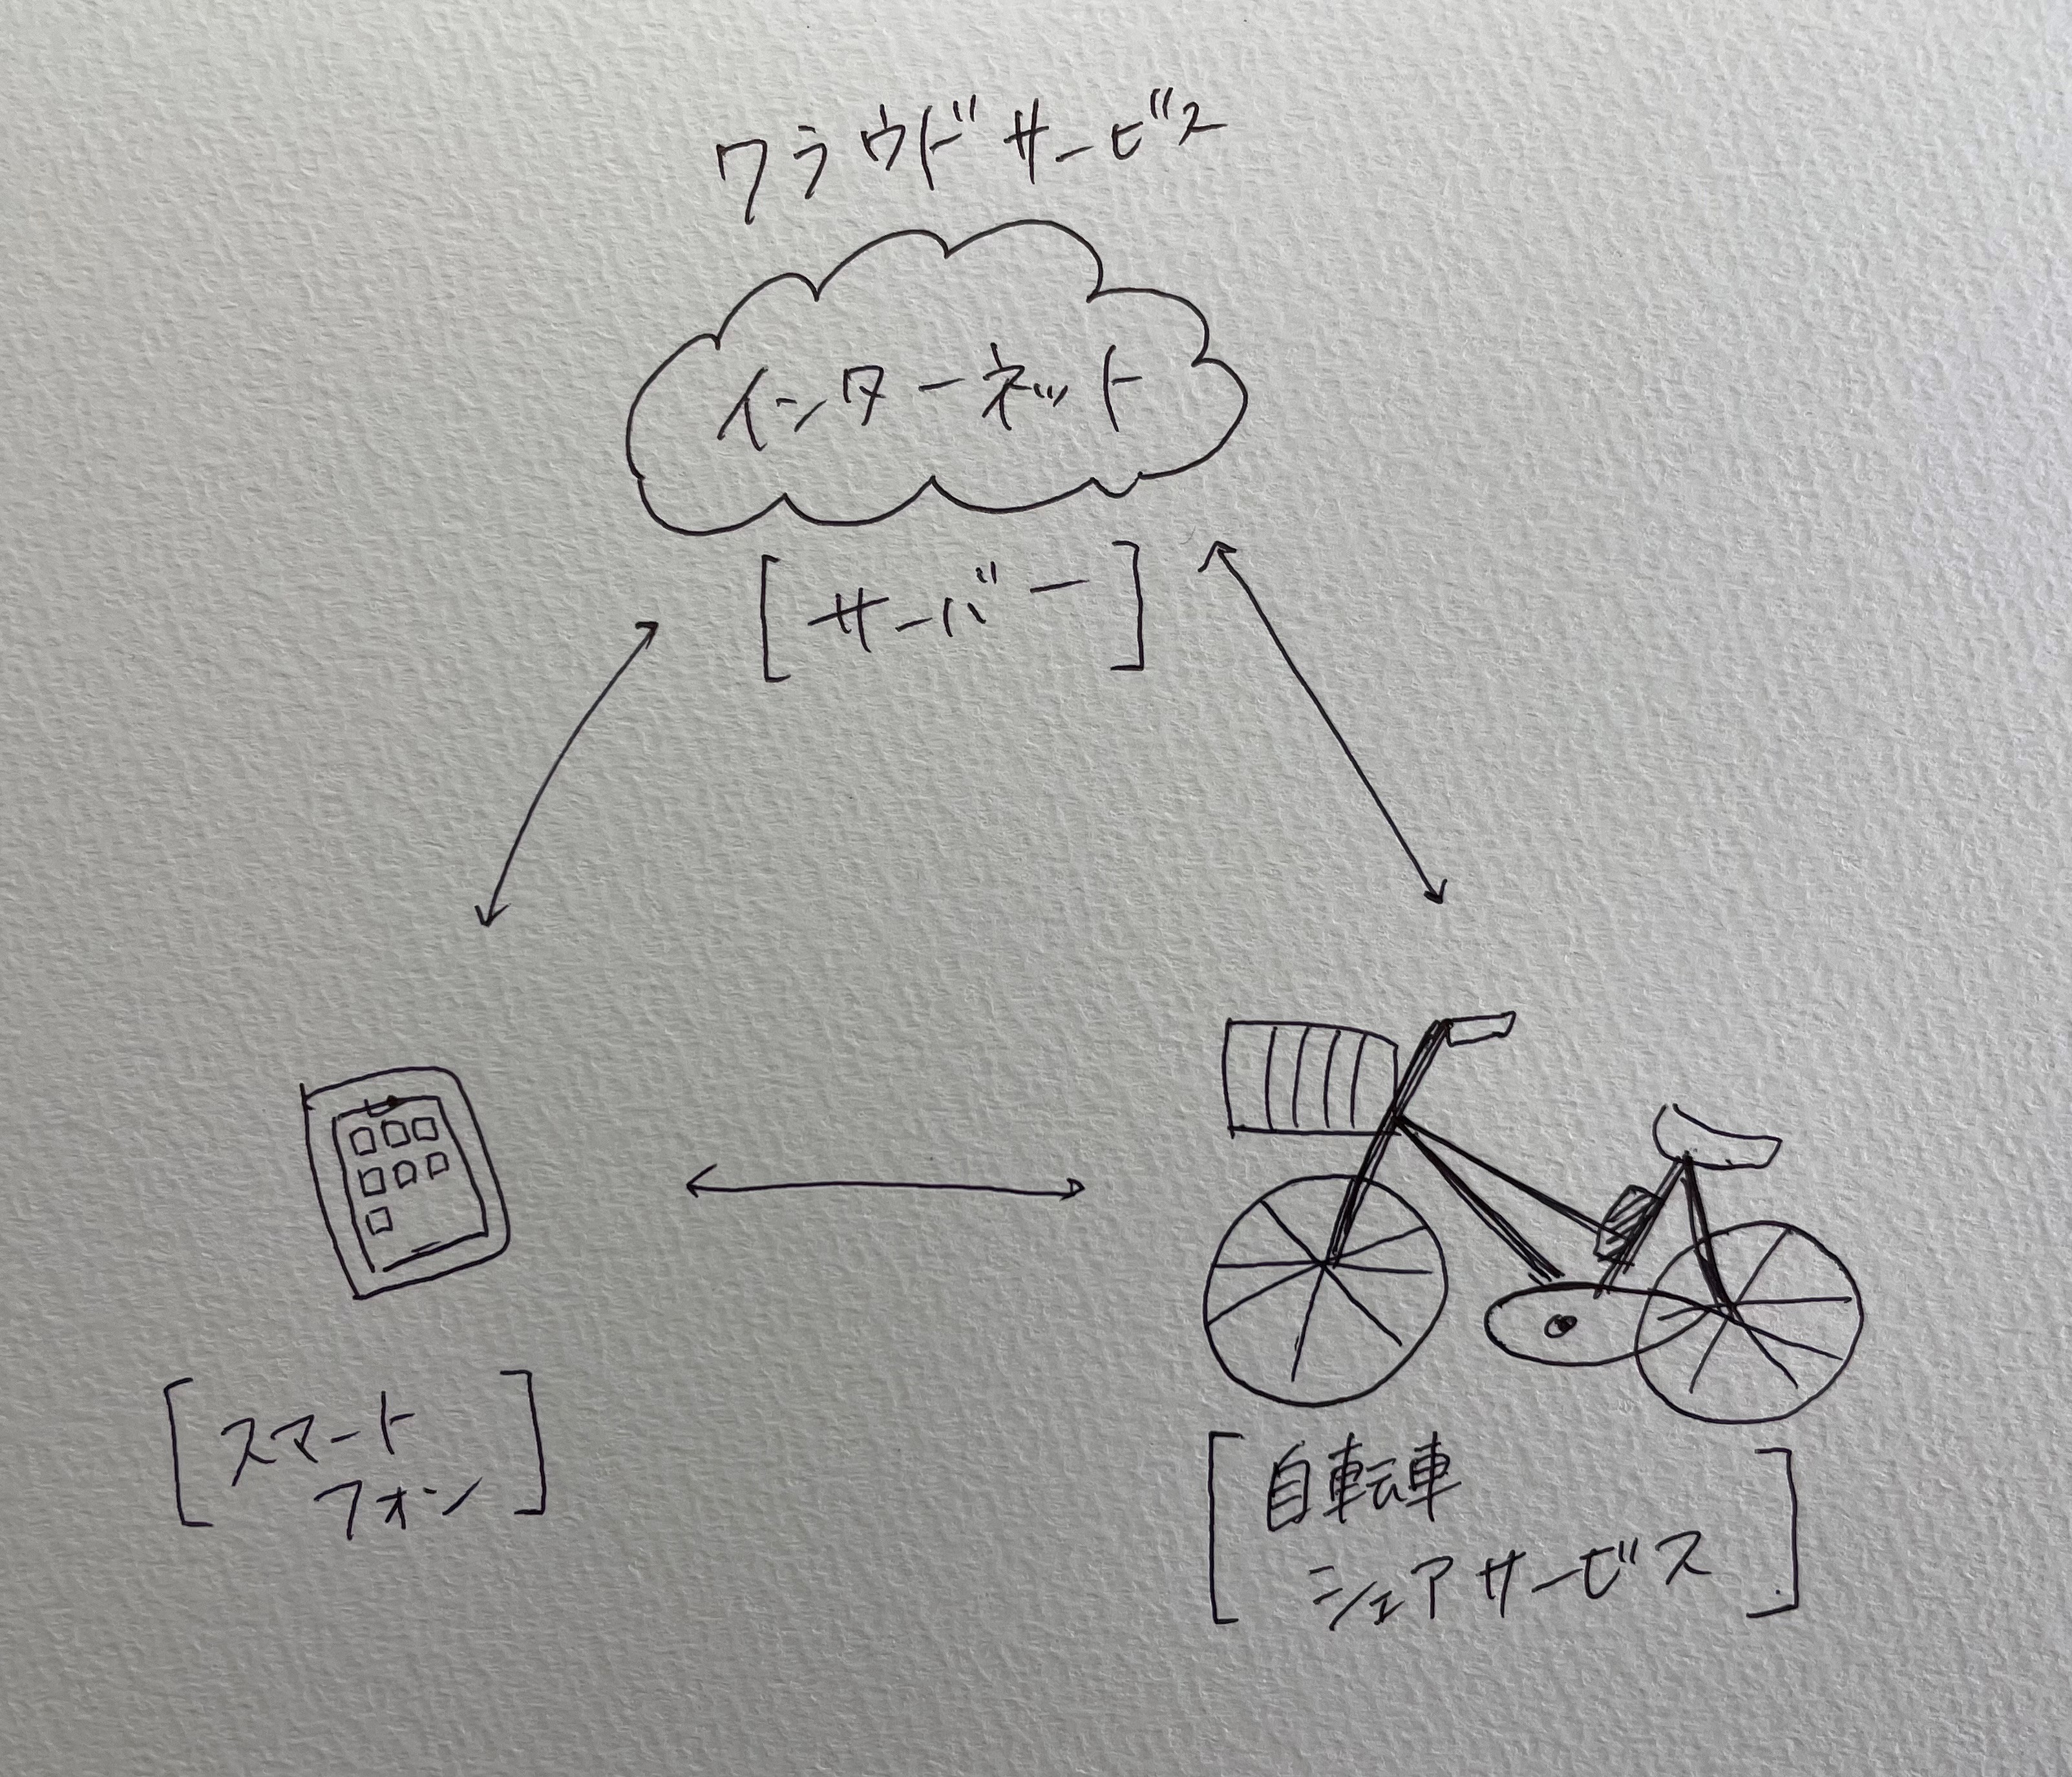 クラウドサービス
インターネット
[サーバー]
[スマート
フォン]
[自転車
シェアサービス]